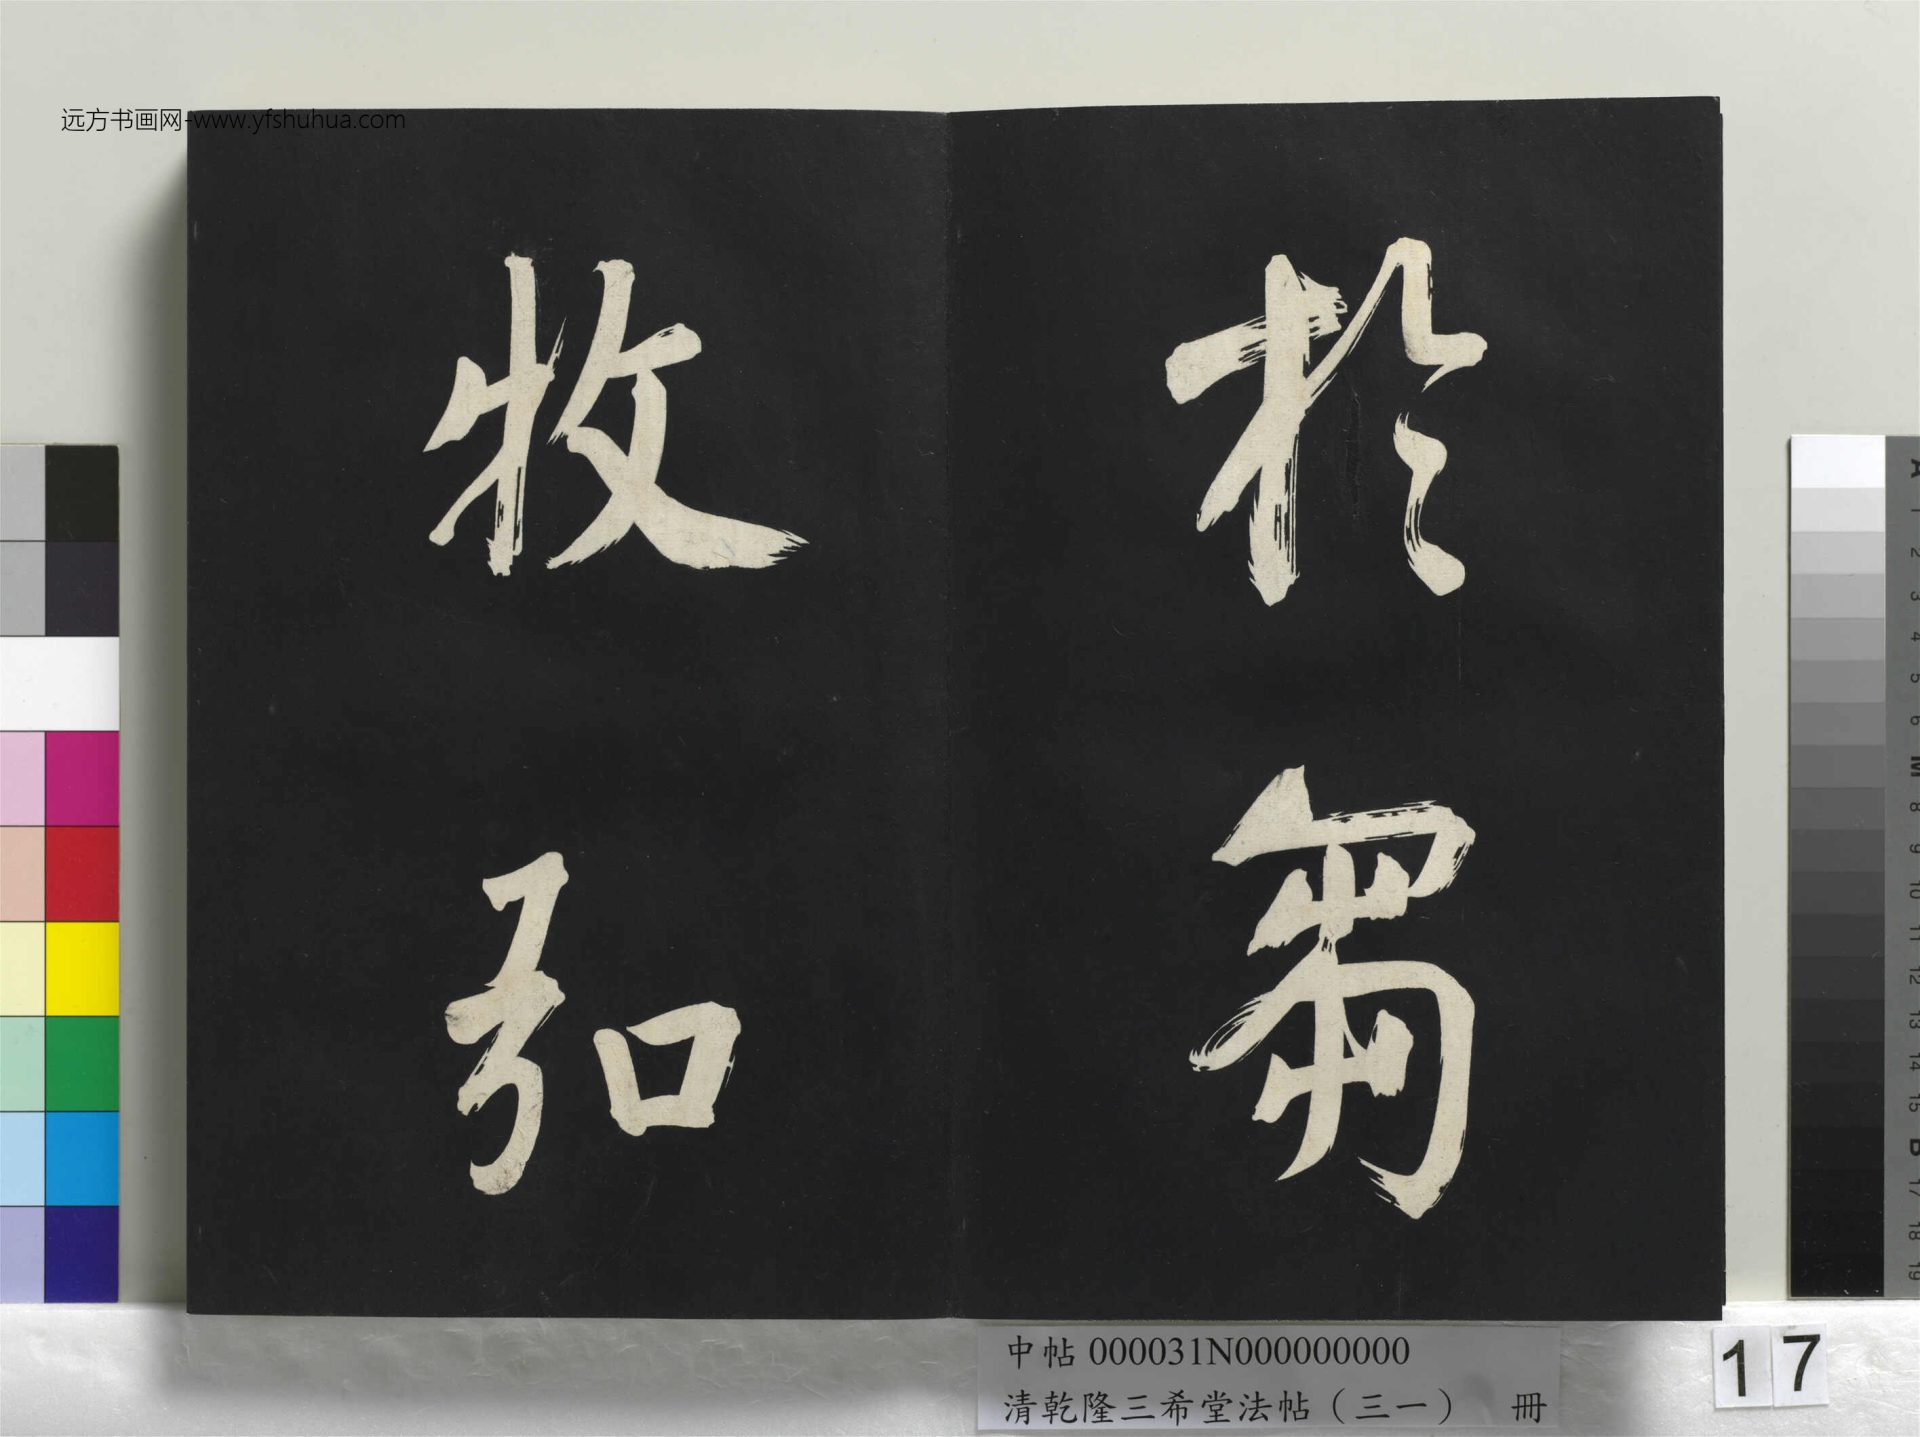 远方书画网-www.yfshuhua.com
於芻
牧弘
中帖 000031N000000000
清乾隆三希堂法帖（三一） 冊
17
A 1 2 3 4 5 6 M 8 9 10 11 12 13 14 15 B 17 18 19